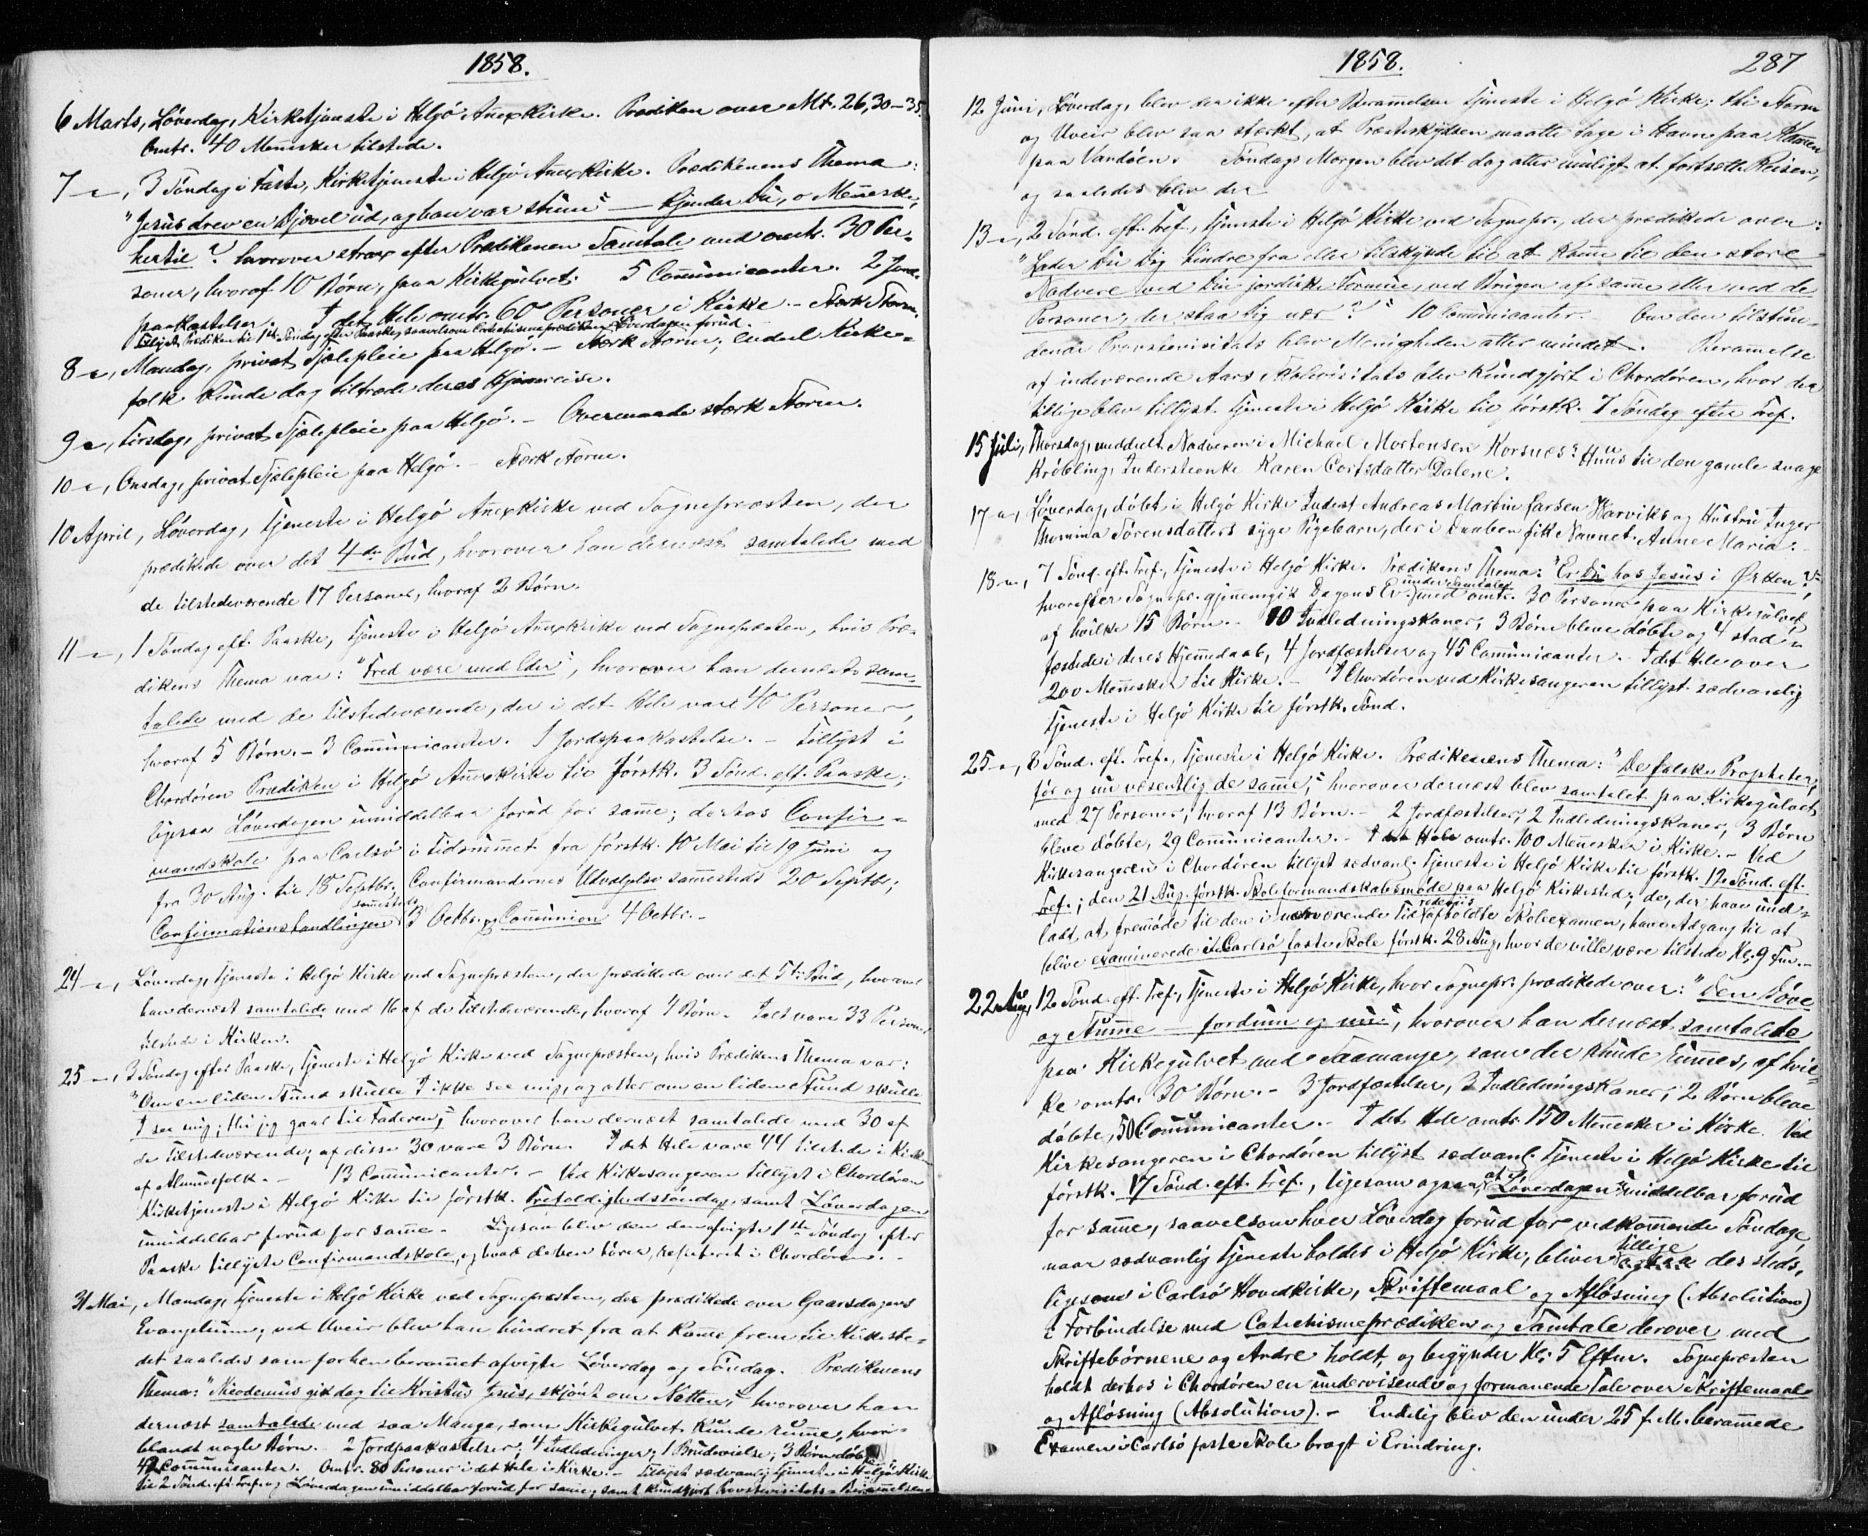 1858.
6 Marts, Löverdag, Kirketjeneste i Helgö Anexkirke. Prædiken over Mt. 26,30-35.
Omtr. 40 Mennesker tilstede.
7 -"-, 3 Söndag i Faste, Kirketjeneste i Helgö Anexkirke. Prædikenens Thema:
"Jesus drev en Djævel ud, og han var stum" - Kjender du, o Menneske,
hertil? hvorover strax efter Prædikenen Samtale med omtr. 30 Per-
soner, hvoraf 10 Börn, paa Kirkegulvet. 5 Communicanter. 2 Jord-
paakastelser. I det Hele omtr. 60 Personer i Kirke. - Stærk Storm.
Tillyst Prædiken til 1ste Söndag efter Paaske, saavelsom Catechismeprædiken Löverdagen forud.
8 -"-, Mandag, privat Sjælepleie paa Helgö. - Stærk Storm; endeel Kirke-
folk kunde dog tiltræde deres Hjemreise.
9 -"-, Tirsdag, privat Sjælepleie paa Helgö. - Overmaade stærk Storm.
10 -"-, Onsdag, privat Sjælepleie paa Helgö. - Stærk Storm.
10 April, Löverdag, Tjeneste i Helgö Anexkirke ved Sognepræsten, der
prædikede over det 4de Bud, hvorover han dernæst samtalede med
de tilstedeværende 17 Personer, hvoraf 2 Börn.
11 -"-, 1 Söndag eft. Paaske, Tjeneste i Helgö Anexkirke ved Sognepræsten, hvis Præ-
dikens Thema var: "Fred være med Eder", hvorover han dernæst sam-
talede med de Tilstedeværende, der i det Hele vare 40 Personer,
hvoraf 5 Börn. - 3 Communicanter. 1 Jordpaakastelse. - Tillyst i
Chordören Prædiken i Helgö Anexkirke til förstk. 3 Sönd. eft. Paaske;
ligesaa Löverdagen umiddelbar forud for samme; derhos Confir-
mandskole paa Carlsö i Tidsrummet fra förstk. 10 Mai til 19 Juni og
fra 30 Aug. til 18 Septbr., Confirmandernes Udvælgelse sammesteds 20 Septb.;
Confirmationshandlingen sammesteds 3 Octbr. og Communion 4 Octbr. -
24 -"-, Löverdag, Tjeneste i Helgö Kirke ved Sognepræsten, der prædikede over det 5te Bud, hvorover
han dernæst samtalede med 16 af de Tilstedeværende, hvoraf 4 Börn. Ialt vare 33 Personer
tilstede i Kirken.
25 -"-, 3 Söndag efter Paaske, Tjeneste i Helgö Kirke ved Sognepræsten, hvis Prædikens Thema var:
"Om en liden Stund skulle I ikke see mig, og atter om en liden Stund skulle
I see mig; thi jeg gaar til Faderen;" hvorover han dernæst samtalede med 30 af
de Tilstedeværende; af disse 30 vare 3 Börn. I det Hele vare 44 tilstede i Kirken
af Almuefolk. - 13 Communicanter. - Ved Kirkesangeren tillyst i Chordören
Kirketjeneste i Helgö Kirke til förstk. Trefoldighedssöndag, samt Löverdagen
umiddelbar forud for samme. Ligesaa blev den den afvigte 1ste Söndag efter
Paaske tillyste Confirmandskole, og hvad dertil hörer, repeteret i Chordören. -
31 Mai, Mandag, Tjeneste i Helgö Kirke ved Sognepræsten, der prædikede over Gaarsdagens
Evangelium; ved Uveir blev han hindret fra at komme frem til Kirkeste-
det saaledes som forhen berammet afvigte Löverdag og Söndag. Prædikenens
Thema: "Nicodemus gik dog til Kristus Jesus, skjönt om Natten;" hvorover han
dernæst samtalede med saa Mange, som Kirkegulvet kunde rumme, hvor-
blandt nogle Börn. - 2 Jordpaakastelser; 4 Indledninger; 1 Brudevielse; 3 Börn döbte
42 Communicanter. Omtr. 80 Personer i det Hele i Kirke. - Tillyst sædvanlig Tjeneste i Helgö Kirke
til 2 Sönd. eft. Tref. og Löverdagen umiddelbar forud for samme, samt kundgjort Provstevisitats-Berammelsen.
1858.
287
12 Juni, Löverdag, blev der ikke efter Berammelsen Tjeneste i Helgö Kirke; thi Storm
og Uveir blev saa stærkt, at Præsteskydsen maatte tage i Havn paa Hamren
paa Vandöen. Söndags Morgen blev det dog atter muligt at fortsætte Reisen,
og saaledes blev der
13 -"-, 2 Sönd. eft. Tref., Tjeneste i Helgö Kirke ved Sognepr., der prædikede over:
"Lader Du Dig hindre fra eller tilskynde til at komme til den store
Nadvere ved Din jordiske Formue, ved Brugen af samme eller ved de
Personer, der staa Dig nær?" 10 Communicanter. Om den tilstun-
dende Provstevisitats blev Menigheden atter mindet. Berammelse
af indeværende Aars Skolevisitats blev kundgjort i Chordören, hvor der
tillige blev tillyst Tjeneste i Helgö Kirke til förstk. 7 Söndag efter Tref.
15 Juli, Thorsdag, meddelt Nadveren i Michael Mortensen Korsnæs's Huus til den gamle svage
Kröbling, Inderstenke Karen Cortsdatter Dalene.
17 -"-, Löverdag, döbt i Helgö Kirke Inderst Andreas Martin Larsen Skarviks og Hustru Inger
Thomina Sörensdatters syge Pigebarn, der i Daaben fik Navnet Anne Maria. -
18 -"-, 7 Sönd. eft. Tref., Tjeneste i Helgö Kirke. Prædikens Thema: "Er Du hos Jesus i Örken?",
hvorefter Sognepr. gjennemgik Dagens Ev. under Samtale med omtr. 30 Personer paa Kirkegulvet,
af hvilke 15 Börn. - 10 Indledningskoner, 3 Börn bleve döbte og 4 stad-
fæstede i deres Hjemmedaab, 4 Jordfæstelser og 45 Communicanter. - I det Hele over
200 Mennesker til Kirke. - I Chordören ved Kirkesangeren tillyst sædvanlig
Tjeneste i Helgö Kirke til förstk. Sönd.
25 -"-, 8 Sönd. eft. Tref., Tjeneste i Helgö Kirke. Prædikenens Thema: "De falske Propheter,
för og nu væsentlig de samme;" hvorover dernæst blev samtalet paa Kirkegulvet
med 27 Personer, hvoraf 13 Börn. - 2 Jordfæstelser, 2 Indledningskoner, 3 Börn
bleve döbte, 29 Communicanter. - I det Hele omtr. 100 Mennesker i Kirke. - Ved
Kirkesangeren i Chordören tillyst sædvanl. Tjeneste i Helgö Kirke til förstk. 12 Sönd. eft.
Tref.; den 21 Aug. förstk. Skoleformandskabsmöde paa Helgö Kirkested; de, der have und-
ladt at fremmöde til den i nærværende Tid afholdte Skoleexamen, have Adgang til at
blive examinerede i Carlsö faste Skole förstk. 28 Aug., hvor de ville være tilstede Kl. 9 Fm. -
22 Aug., 12 Sönd. eft. Tref., Tjeneste i Helgö Kirke, hvor Sognepr. prædikede over: "Den Döve
og Stumme - fordum og nu", hvorover han dernæst samtalede
paa Kirkegulvet med Saamange, som der kunde rummes, af hvil-
ke omtr. 30 Börn. - 3 Jordfæstelser, 3 Indledningskoner; 2 Börn bleve
döbte, 50 Communicanter. - I det Hele omtr. 150 Mennesker i Kirke. Ved
Kirkesangeren i Chordören tillyst sædvanl. Tjeneste i Helgö Kirke til
förstk. 17 Sönd. eft. Tref., ligesom ogsaa, at Löverdagen umiddelbar forud
for samme, saavelsom hver Löverdag forud for vedkommende Söndage,
naar sædvanlig Tjeneste holdes i Helgö Kirke, bliver tillige der steds,
ligesom i Carlsö Hovedkirke, Skriftemaal og Aflösning (Absolution)
i Forbindelse med Catechismeprædiken og Samtale derover med
Skriftebörnene og Andre holdt, og begynder Kl. 5 Eftm. Sognepræsten
holdt derhos i Chordören en underviisende og formanende Tale over Skriftemaal
og Aflösning (Absolution). - Endelig blev den under 25 f. M. berammede
Examen i Carlsö faste Skole bragt i Erindring.